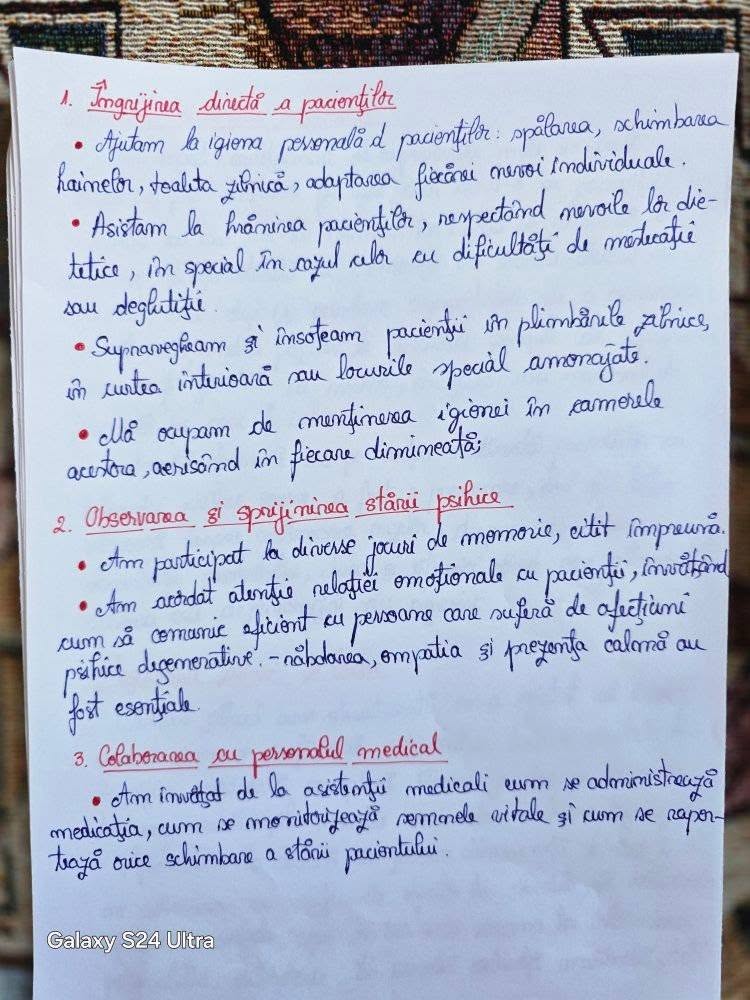 1. Îngrijirea directă a pacienților
• Ajutam la igiena personală a pacienților: spălarea, schimbarea
hainelor, toaleta zilnică, adaptarea fiecărei nevoi individuale.
• Asistam la hrănirea pacienților, respectând nevoile lor die-
tetice, în special în cazul celor cu dificultăți de masticație
sau deglutiție.
• Supravegheam și însoțeam pacienții în plimbările zilnice,
în curtea interioară sau locurile special amenajate.
• Mă ocupam de menținerea igienei în camerele
acestora, aerisând în fiecare dimineață;
2. Observarea și sprijinirea stării psihice
• Am participat la diverse jocuri de memorie, citit împreună.
• Am acordat atenție relației emoționale cu pacienții, învățând
cum să comunic eficient cu persoane care suferă de afecțiuni
psihice degenerative. - răbdarea, empatia și prezența calmă au
fost esențiale.
3. Colaborarea cu personalul medical
• Am învățat de la asistenții medicali cum se administrează
medicația, cum se monitorizează semnele vitale și cum se rapor-
tează orice schimbare a stării pacientului.
Galaxy S24 Ultra